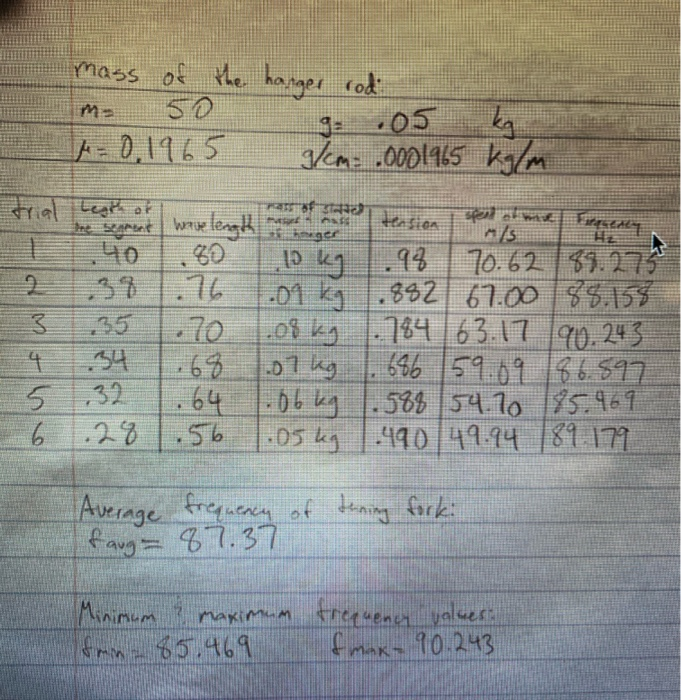 mass of the hanger rod:
m= 50 g= .05 kg
μ= 0.1965 g/cm= .0001965 kg/m
trial Legth of the segment wave length mass of slotted masses + mass of hanger tension speed of wave m/s Frequency Hz
1 .40 .80 .10 kg .98 70.62 88.275
2 .38 .76 .09 kg .882 67.00 88.158
3 .35 .70 .08 kg .784 63.17 90.243
4 .34 .68 .07 kg .686 59.09 86.897
5 .32 .64 .06 kg .588 54.70 85.469
6 .28 .56 .05 kg .490 49.94 89.179
Average frequency of tuning fork:
favg= 87.37
Minimum & maximum frequency values:
fmin= 85.469 fmax= 90.243